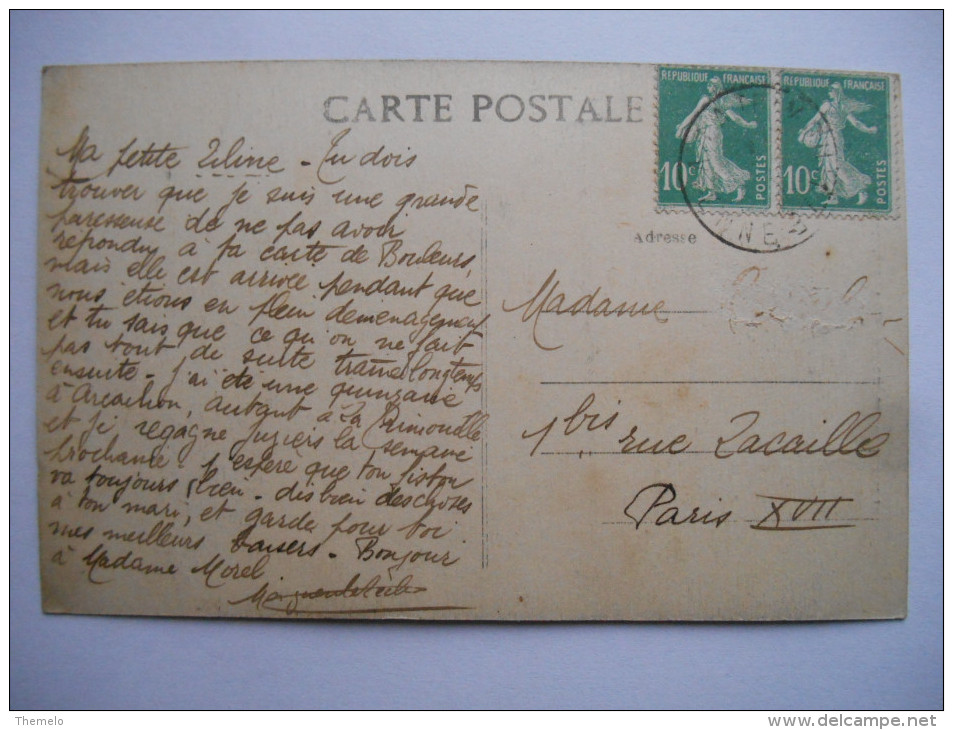 CARTE POSTALE
REPUBLIQUE FRANÇAISE
10c POSTES
REPUBLIQUE FRANÇAISE
10c POSTES
Ma petite Liline - Tu dois
trouver que je suis une grande
paresseuse de ne pas avoir
repondu à ta carte de Bouleurs,
mais elle est arrivée pendant que
nous étions en plein déménagement
et tu sais que ce qu'on ne fait
pas tout de suite traine longtemps
ensuite - J'ai été une quinzaine
à Arcachon, autant à La Trimouille
et je regagne Juziers la semaine
prochaine. J'espère que ton fiston
va toujours bien - dis bien des choses
à ton mari, et garde pour toi
mes meilleurs baisers - Bonjour
à Madame Morel
Adresse
Madame
1 bis rue Lacaille
Paris XVII
Themelo
www.delcampe.net